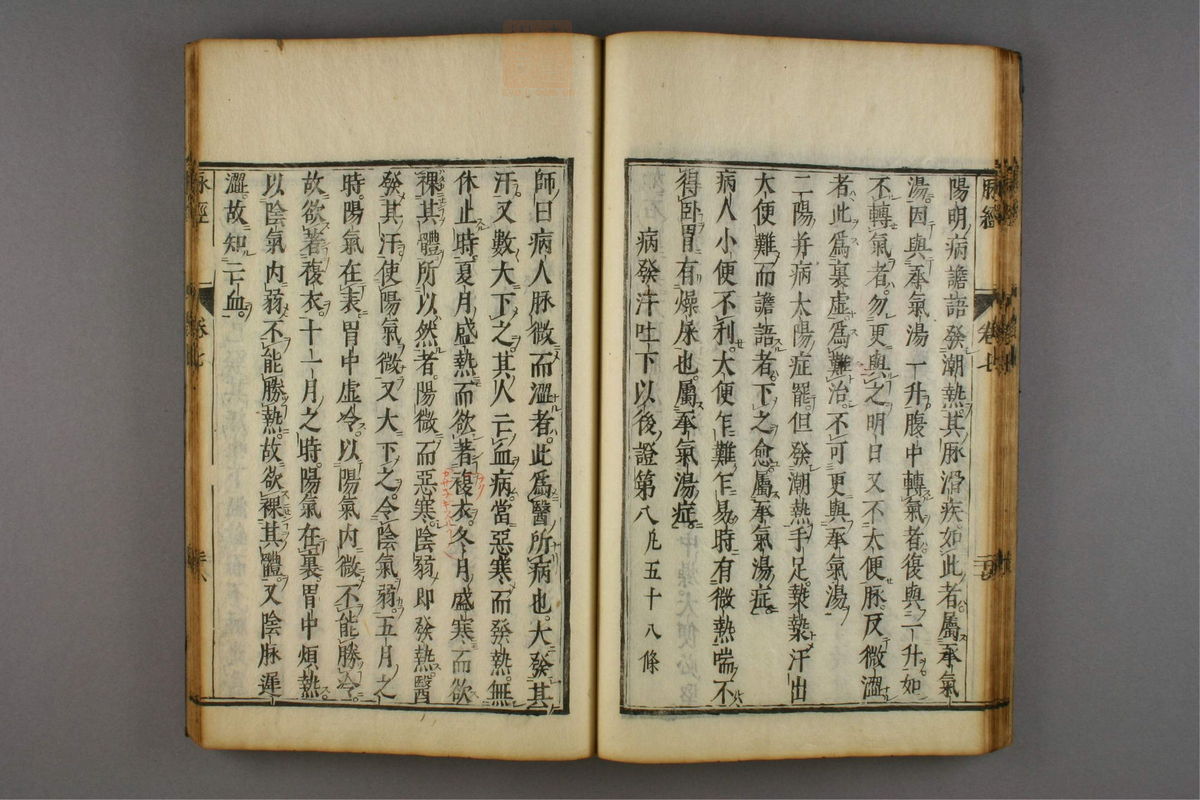 陽明病譫語發潮熱其脉滑疾如此者屬承氣
湯因與承氣湯一升腹中轉氣者復與一升如
不轉氣者勿更與之明日又不大便脉反微澀
者此爲裏虛爲難治不可更與承氣湯
二陽并病太陽症罷但發潮熱手足漐漐汗出
大便難而譫語者下之愈屬承氣湯症
病人小便不利大便乍難乍易時有微熱喘不
得卧胃有燥屎也屬承氣湯症
病發汗吐下以後證第八 凡五十八條
師曰病人脉微而澀者此爲醫所病也大發其
汗又數大下之其人亡血病當惡寒而發熱無
休止時夏月盛熱而欲著複衣冬月盛寒而欲
裸其體所以然者陽微而惡寒陰弱即發熱醫
發其汗使陽氣微又大下之令陰氣弱五月之
時陽氣在表胃中虛冷以陽氣内微不能勝冷
故欲著複衣十一月之時陽氣在裏胃中煩熱
以陰氣内弱不能勝熱故欲裸其體又陰脉遲
澀故知亡血
脉經
卷七